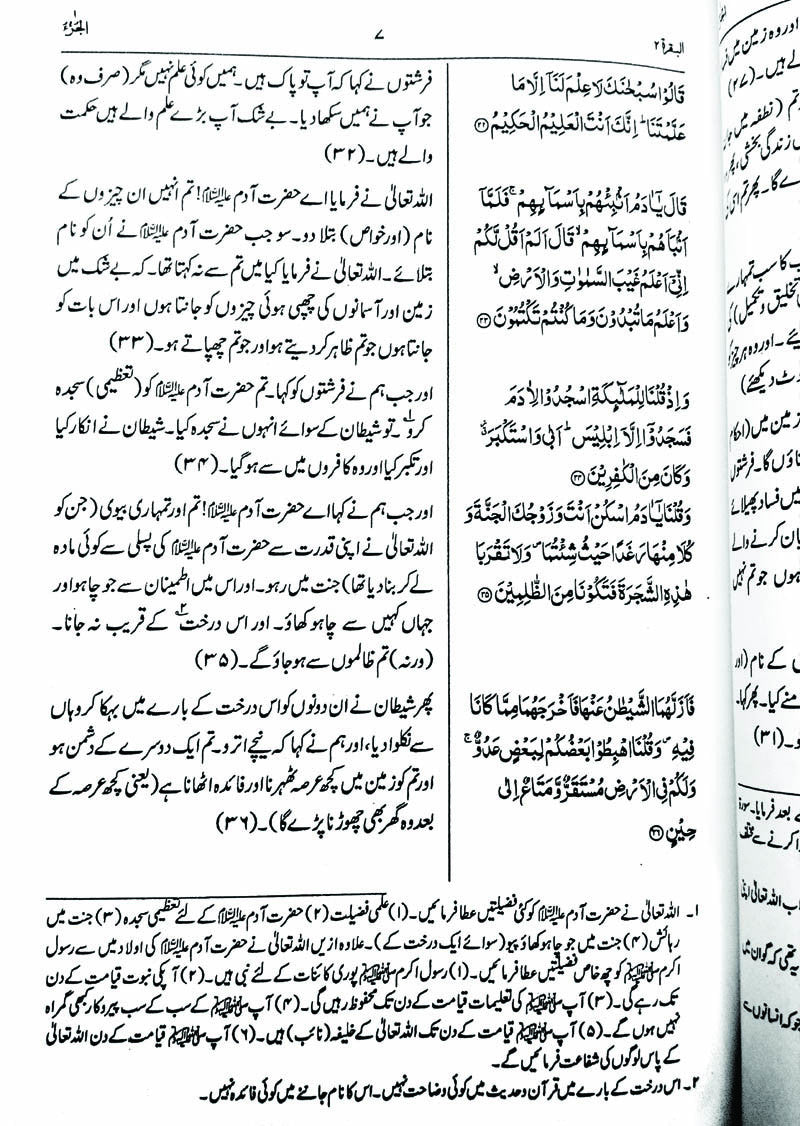 البقرة ٢
٧
الجزء ١
قَالُوْا سُبْحٰنَكَ لَا عِلْمَ لَنَآ اِلَّا مَا
عَلَّمْتَنَا ؕ اِنَّكَ اَنْتَ الْعَلِيْمُ الْحَكِيْمُ ﴿۳۲﴾
قَالَ يٰٓاٰدَمُ اَنْۢبِئْهُمْ بِاَسْمَآئِهِمْ ۚ فَلَمَّآ
اَنْۢبَاَهُمْ بِاَسْمَآئِهِمْ ۙ قَالَ اَلَمْ اَقُلْ لَّكُمْ
اِنِّيْٓ اَعْلَمُ غَيْبَ السَّمٰوٰتِ وَالْاَرْضِ ۙ
وَاَعْلَمُ مَا تُبْدُوْنَ وَمَا كُنْتُمْ تَكْتُمُوْنَ ﴿۳۳﴾
وَاِذْ قُلْنَا لِلْمَلٰٓئِكَةِ اسْجُدُوْا لِاٰدَمَ
فَسَجَدُوْٓا اِلَّآ اِبْلِيْسَ ؕ اَبٰى وَاسْتَكْبَرَ ٭ۗ
وَكَانَ مِنَ الْكٰفِرِيْنَ ﴿۳۴﴾
وَقُلْنَا يٰٓاٰدَمُ اسْكُنْ اَنْتَ وَزَوْجُكَ الْجَنَّةَ وَ
كُلَا مِنْهَا رَغَدًا حَيْثُ شِئْتُمَا ۪ وَلَا تَقْرَبَا
هٰذِهِ الشَّجَرَةَ فَتَكُوْنَا مِنَ الظّٰلِمِيْنَ ﴿۳۵﴾
فَاَزَلَّهُمَا الشَّيْطٰنُ عَنْهَا فَاَخْرَجَهُمَا مِمَّا كَانَا
فِيْهِ ۪ وَقُلْنَا اهْبِطُوْا بَعْضُكُمْ لِبَعْضٍ عَدُوٌّ ۚ
وَلَكُمْ فِى الْاَرْضِ مُسْتَقَرٌّ وَّمَتَاعٌ اِلٰى
حِيْنٍ ﴿۳۶﴾
فرشتوں نے کہا کہ آپ تو پاک ہیں۔ ہمیں کوئی علم نہیں مگر (صرف وہ)
جو آپ نے ہمیں سکھا دیا۔ بے شک آپ بڑے علم والے ہیں حکمت
والے ہیں۔ (۳۲)
اللہ تعالیٰ نے فرمایا اے حضرت آدم علیہ السلام! تم انہیں ان چیزوں کے
نام (اور خواص) بتلا دو۔ سو جب حضرت آدم علیہ السلام نے اُن کو نام
بتلائے۔ اللہ تعالیٰ نے فرمایا کیا میں تم سے نہ کہتا تھا۔ کہ بے شک میں
زمین اور آسمانوں کی چھپی ہوئی چیزوں کو جانتا ہوں اور اس بات کو
جانتا ہوں جو تم ظاہر کر دیتے ہو اور جو تم چھپاتے ہو۔ (۳۳)
اور جب ہم نے فرشتوں کو کہا۔ تم حضرت آدم علیہ السلام کو (تعظیمی) سجدہ
کرو۱۔ تو شیطان کے سوائے انہوں نے سجدہ کیا۔ شیطان نے انکار کیا
اور تکبر کیا اور وہ کافروں میں سے ہو گیا۔ (۳۴)
اور جب ہم نے کہا اے حضرت آدم علیہ السلام! تم اور تمہاری بیوی (جن کو
اللہ تعالیٰ نے اپنی قدرت سے حضرت آدم علیہ السلام کی پسلی سے کوئی مادہ
لے کر بنا دیا تھا) جنت میں رہو۔ اور اس میں اطمینان سے جو چاہو اور
جہاں کہیں سے چاہو کھاؤ۔ اور اس درخت۲ کے قریب نہ جانا۔
(ورنہ) تم ظالموں سے ہو جاؤ گے۔ (۳۵)
پھر شیطان نے ان دونوں کو اس درخت کے بارے میں بہکا کر وہاں
سے نکلوا دیا، اور ہم نے کہا کہ نیچے اترو۔ تم ایک دوسرے کے دشمن ہو
اور تم کو زمین میں کچھ عرصہ ٹھہرنا اور فائدہ اٹھانا ہے (یعنی کچھ عرصہ کے
بعد وہ گھر بھی چھوڑنا پڑے گا)۔ (۳۶)
۱۔ اللہ تعالیٰ نے حضرت آدم علیہ السلام کو کئی فضیلتیں عطا فرمائیں۔ (۱) علمی فضیلت (۲) حضرت آدم علیہ السلام کے لئے تعظیمی سجدہ (۳) جنت میں
رہائش (۴) جنت میں جو چاہو کھاؤ پیو (سوائے ایک درخت کے)۔ علاوہ ازیں اللہ تعالیٰ نے حضرت آدم علیہ السلام کی اولاد میں سے رسول
اکرم ﷺ کو چھ خاص فضیلتیں عطا فرمائیں۔ (۱) رسول اکرم ﷺ پوری کائنات کے لئے نبی ہیں۔ (۲) آپ کی نبوت قیامت کے دن
تک رہے گی۔ (۳) آپ ﷺ کی تعلیمات قیامت کے دن تک محفوظ رہیں گی۔ (۴) آپ ﷺ کے سب کے سب پیروکار کبھی گمراہ
نہیں ہوں گے۔ (۵) آپ ﷺ قیامت کے دن تک اللہ تعالیٰ کے خلیفہ (نائب) ہیں۔ (۶) آپ ﷺ قیامت کے دن اللہ تعالیٰ
کے پاس لوگوں کی شفاعت فرمائیں گے۔
۲۔ اس درخت کے بارے میں قرآن و حدیث میں کوئی وضاحت نہیں۔ اس کا نام جاننے میں کوئی فائدہ نہیں۔